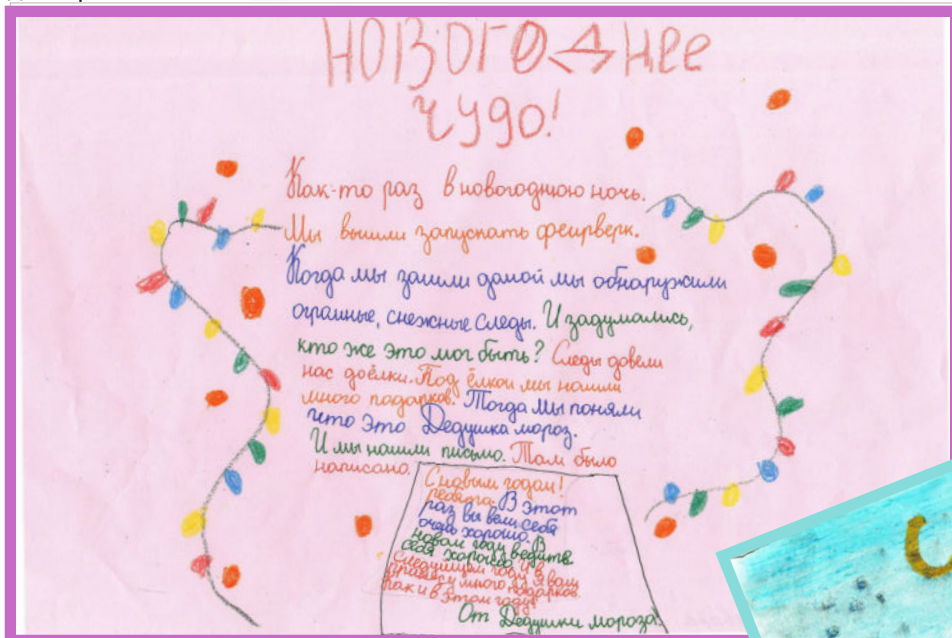 НОВОГОДНЕЕ
ЧУДО!
Как-то раз в новогоднюю ночь.
Мы вышли запускать феирверк.
Когда мы зашли дамой мы обнаружили
аграмные, снежные следы. И задумались,
кто же это мог быть? Следы довели
нас доёлки. Под ёлкой мы нашли
много подарков. Тогда мы поняли
что это Дедушка мороз.
И мы нашли письмо. Там было
написано.
С новым годом!
ребята. В этот
раз вы вели себя
очень хорошо. В
новом году ведите
себя хорошо и в
следуйщем году я вам
принесу много подарков.
как и в этом году!
От Дедушки мороза!